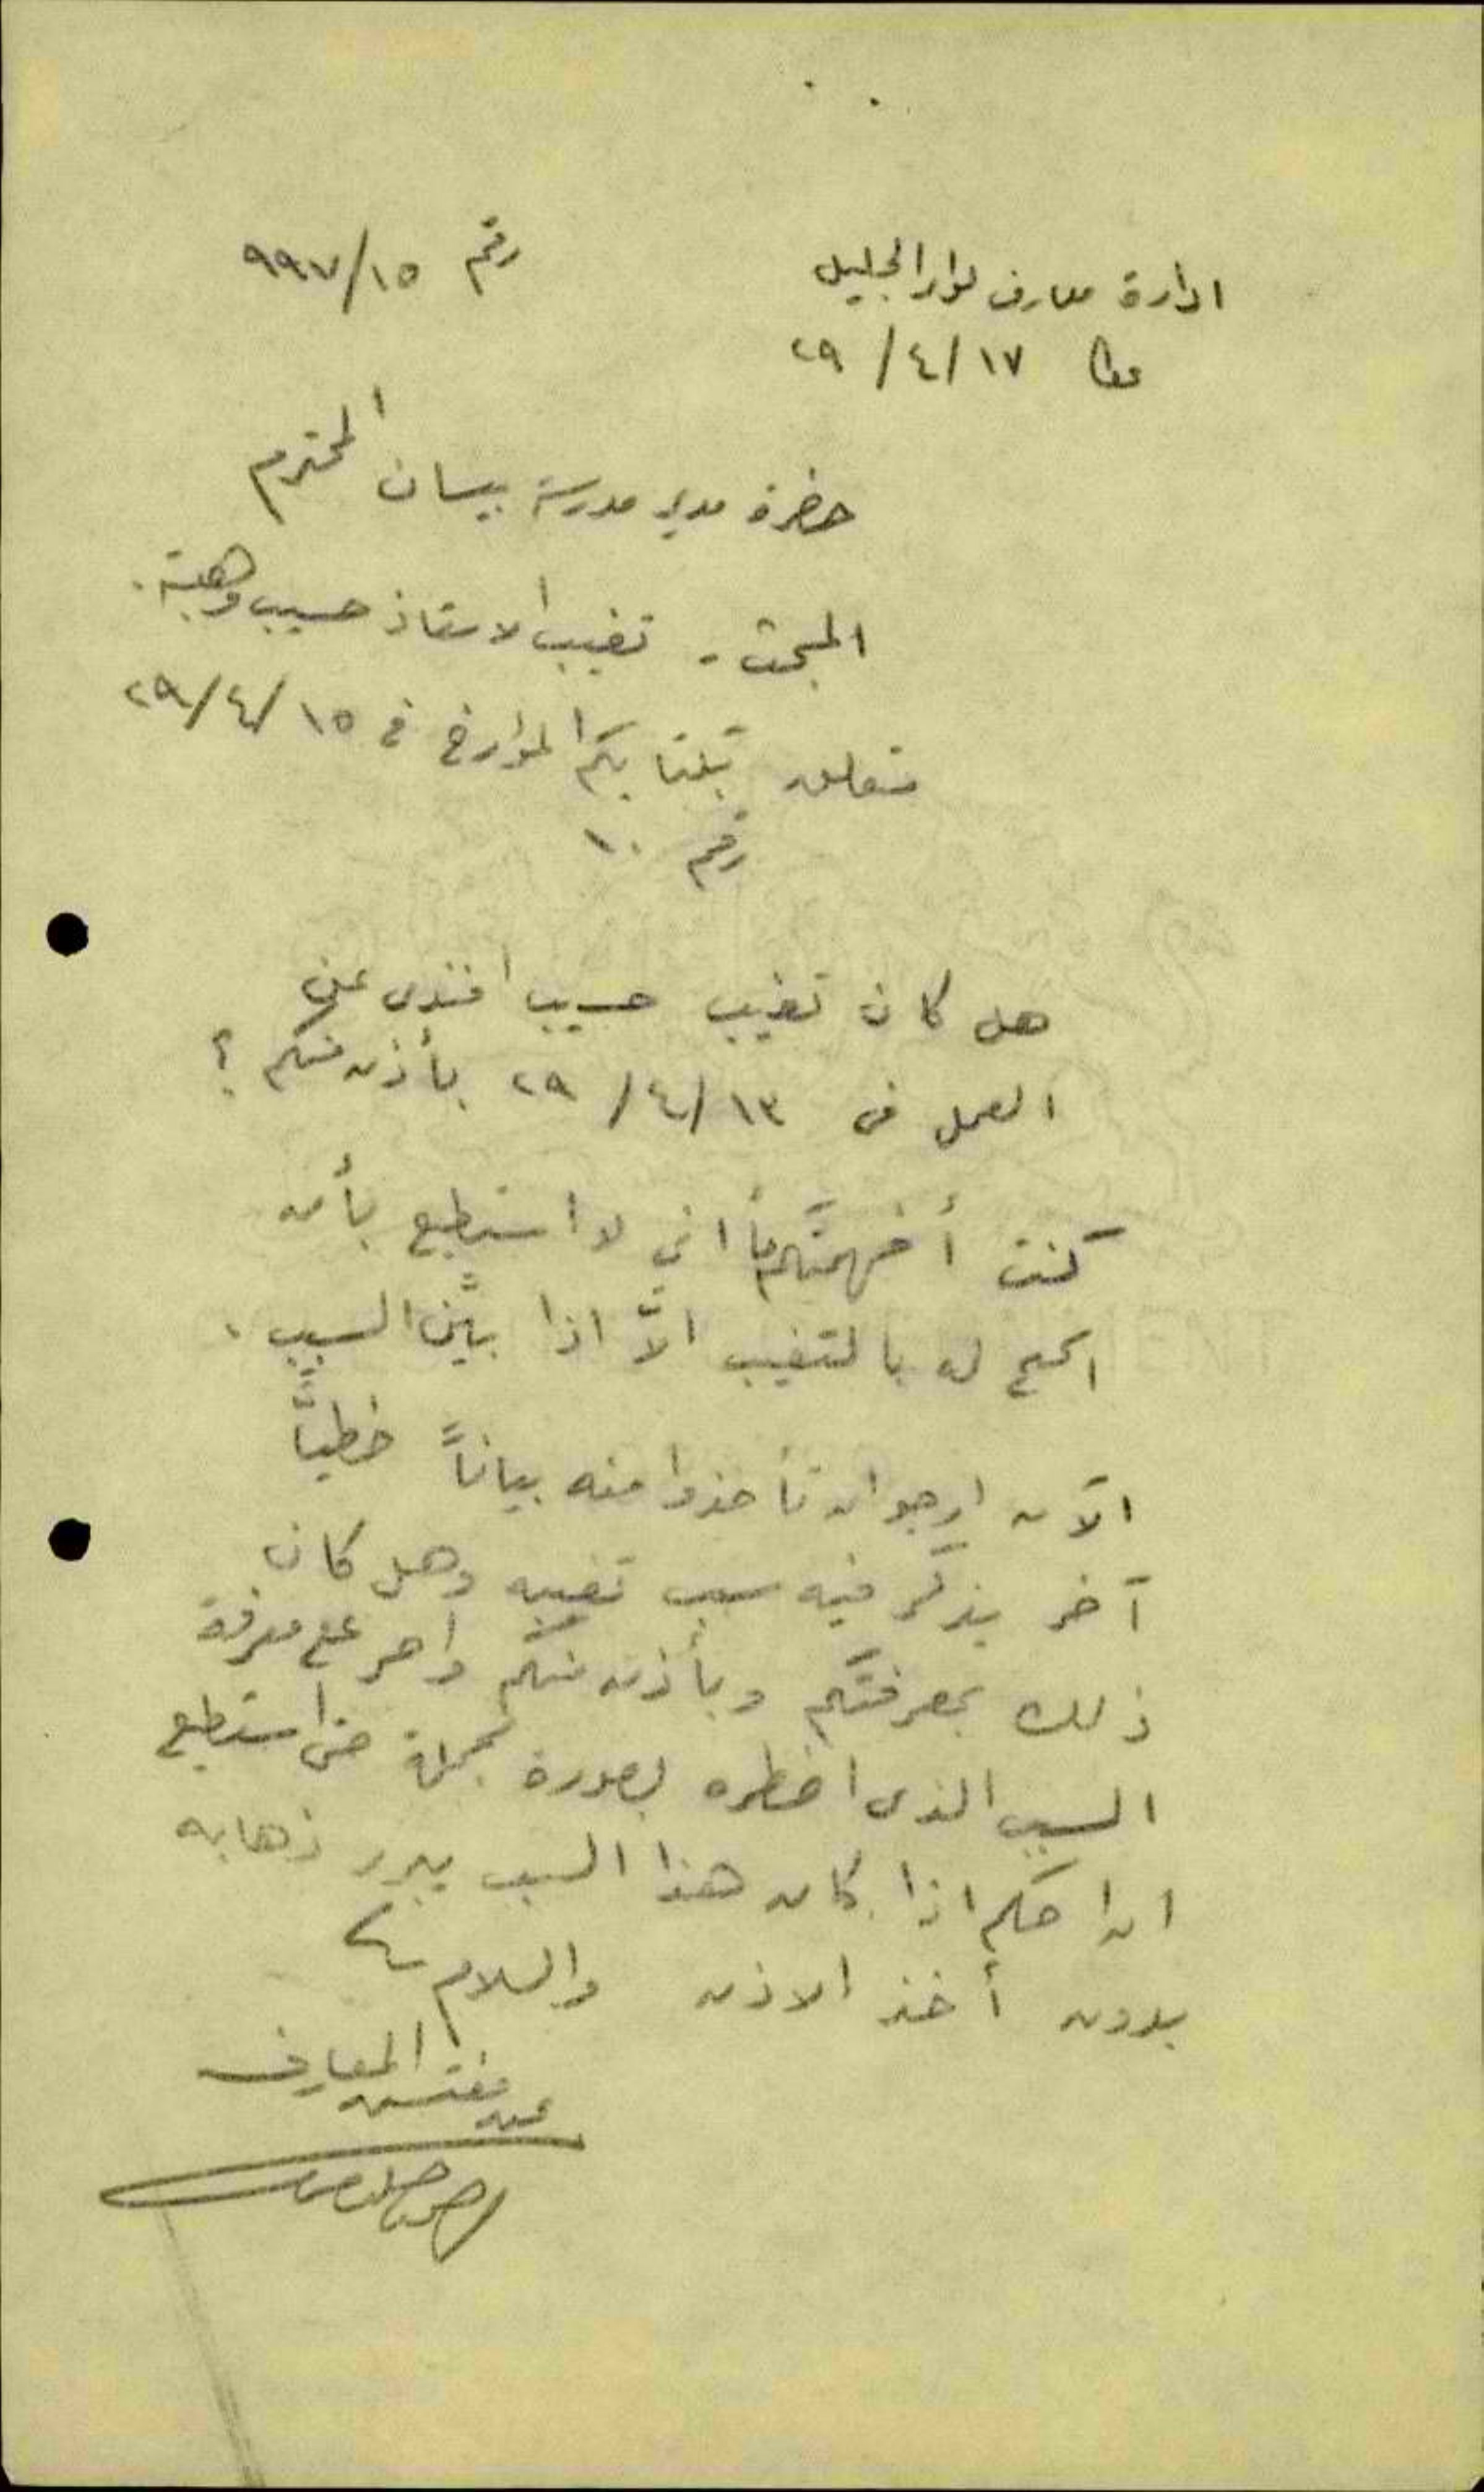 ادارة معارف لواء الجليل
رقم ٩٩٧/١٥
عكا ١٧/٤/٢٩
حضرة مدير مدرسة بيسان المحترم
المبحث - تغيب الاستاذ حسيب وهبة.
متعلق بكتابكم المؤرخ في ١٥/٤/٢٩
رقم ١٠
هل كان تغيب حسيب افندي عن
العمل في ١٣/٤/٢٩ بأذن منكم ؟
كنت أفهمتكم اني لا استطيع بأن
اسمح له بالتغيب الاّ اذا بيّن السبب.
الآن ارجو ان تأخذوا منه بياناً خطيّاً
آخر يذكر فيه سبب تغيبه وهل كان
ذلك بمعرفتكم وبأذن منكم مع معرفة
السبب الذي اضطره بصورة مجملة حتى استطيع
ان احكم اذا كان هذا السبب يبرر ذهابه
بدون أخذ الاذن والسلام
عن مفتش المعارف